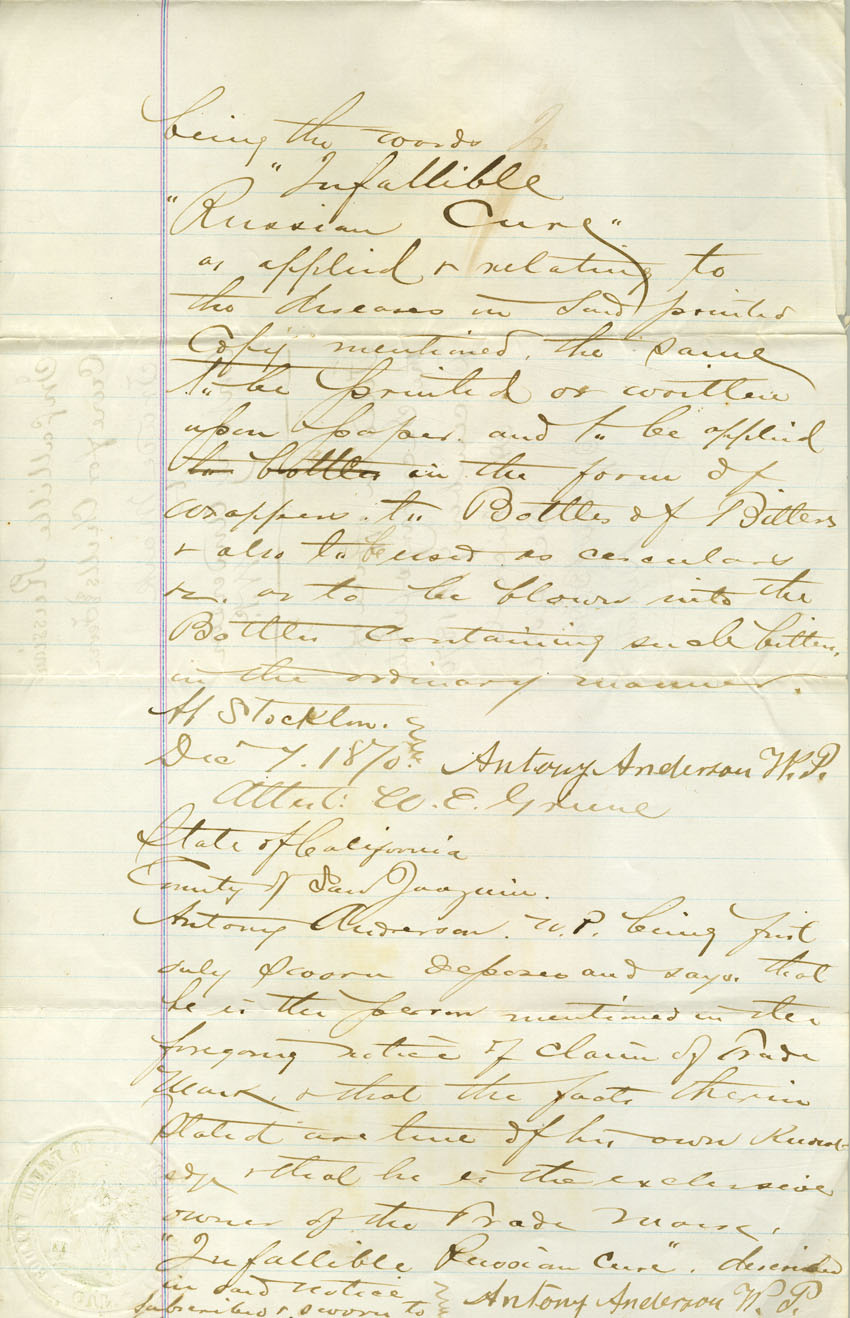 being the words
"Infallible
"Russian Cure"
as applied & relating to
the diseases in said printed
Copy mentioned, the same
to be printed or written
upon paper and to be applied
to bottles in the form of
wrappers to Bottles of Bitters
& also to be used as circulars
&c. or to be blown into the
Bottles containing such bitters,
in the ordinary manner.
At Stockton.
Dec 7. 1870. Antony Anderson W.P.
Attest: W. E. Greene
State of California
County of San Joaquin.
Antony Anderson. W.P. being first
duly sworn deposes and says that
he is the person mentioned in the
foregoing notice of claim of Trade
Mark, & that the facts therein
stated are true of his own Knowl-
edge & that he is the exclusive
owner of the Trade Mark,
"Infallible Russian Cure", described
in said notice
Subscribed & sworn to Antony Anderson W. P.
Infallible Russian
Cure for Chills &
Trade Mark
COUNTY COURT OF